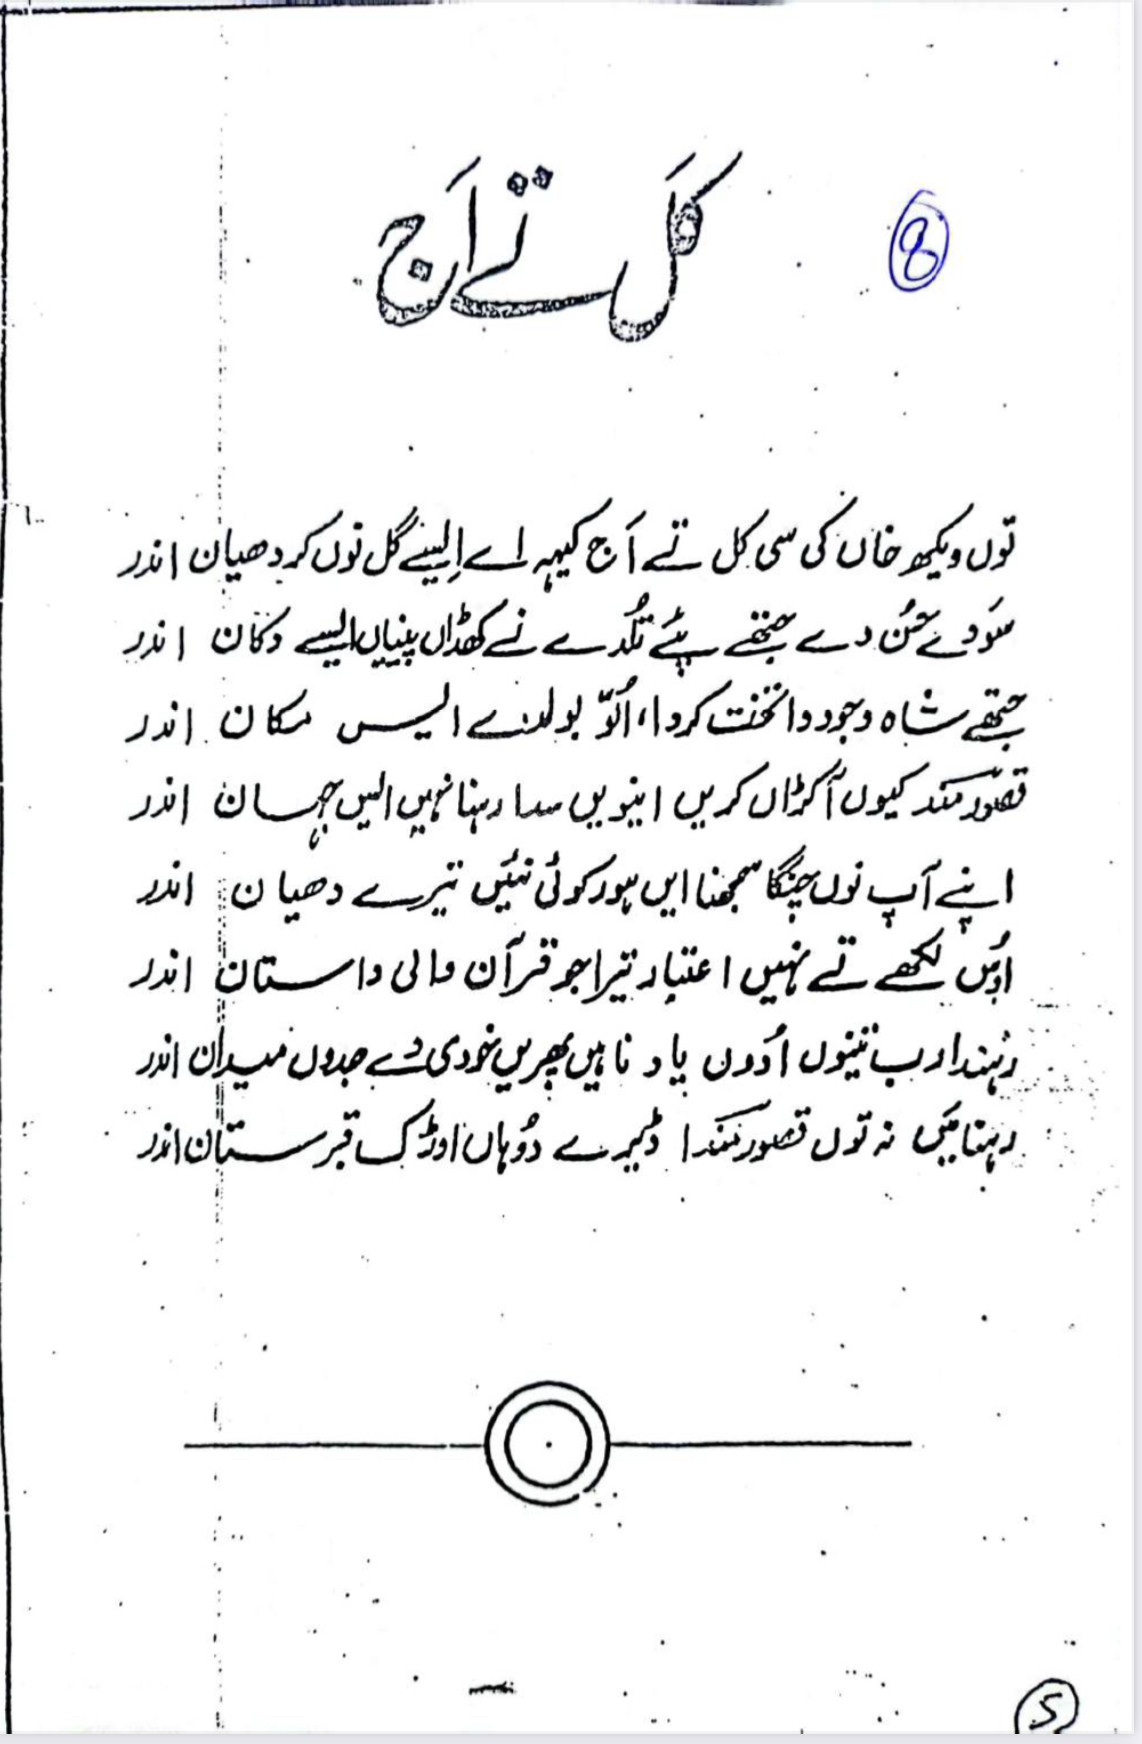 8
کل تے اَج
توں ویکھ خاں کی سی کل تے اَج کیہہ اے اِسے گل نوں کر دھیان اندر
سَودے حُسن دے جتھے پئے تُلدے نے کھڈاں پئیاں ایسے دکان اندر
جتھے شاہ وجود دا تخت کردا، اُلّو بولدے ایس مکان اندر
قصور مند کیوں آکڑاں کریں اینویں سدا رہنا نہیں ایس جہان اندر
اپنے آپ نوں چنگا سمجھنا ایں ہور کوئی نئیں تیرے دھیان اندر
اوس لکھے تے نہیں اعتبار تیرا جو قرآن والی داستان اندر
رہندا رب تینوں اُدوں یاد ناہیں پھریں خودی دے جدوں میدان اندر
رہنا میَں نہ توں قصور مندا ڈیرے دوُہاں اوڑک قبرستان اندر
5